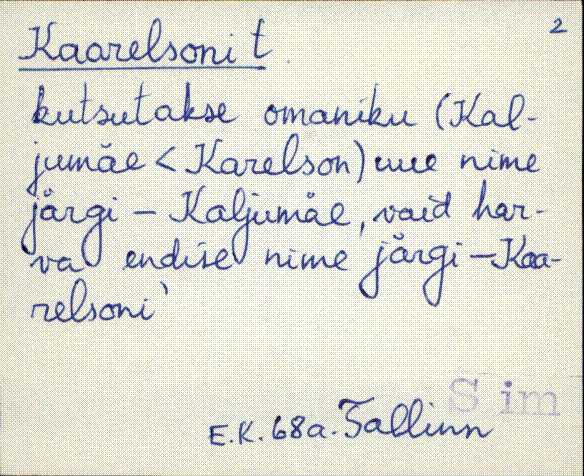 2
Kaarelsoni t.
kutsutakse omaniku (Kal-
jumäe < Karelson) uue nime
järgi – Kaljumäe, vaid har-
va endise nime järgi – Kaa-
relsoni'
S im
E.K. 68a. Tallinn